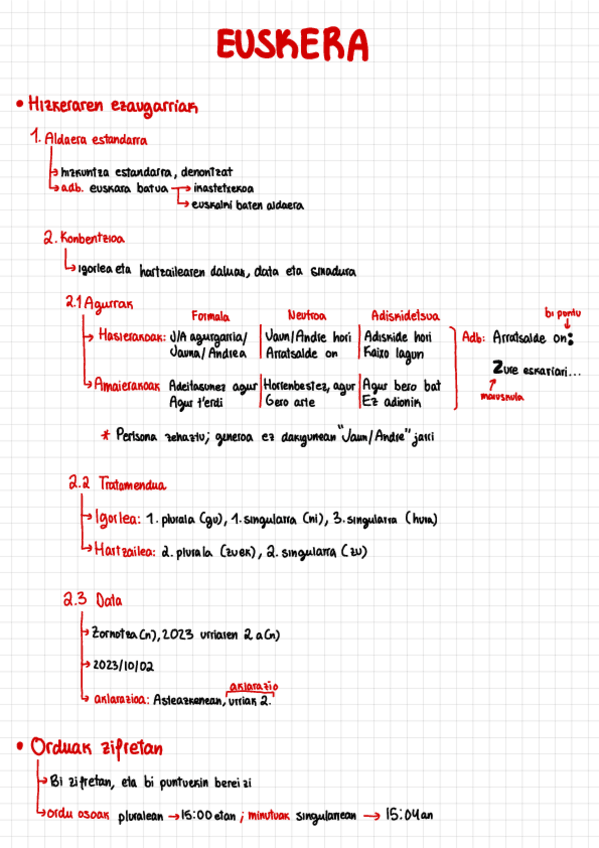 EUSKERA
• Hizkeraren ezaugarriak
1. Aldaera estandarra
→ hizkuntza estandarra, denontzat
→ adb. euskara batua → ikastetxekoa
→ euskalki baten aldaera
2. Konbentzioa
→ igorlea eta hartzailearen daluak, data eta sinadura
2.1 Agurrak
Formala Neutroa Adiskidetsua bi puntu
→ Hasierakoak: J/A agurgarria/ Jaun/Andre hori Adiskide hori Adb: Arratsalde on:
Jauna/Andrea Arratsalde on Kaixo lagun
Zure eskariari...
→ Amaierakoak Adeitasunez agur Horrenbestez, agur Agur bero bat maiuskula
Agur t'erdi Gero arte Ez adiorik
* Pertsona zehaztu; generoa ez dakigunean "Jaun/Andre" jarri
2.2 Tratamendua
→ Igorlea: 1. plurala (gu), 1. singularra (ni), 3. singularra (hura)
→ Hartzailea: 2. plurala (zuek), 2. singularra (zu)
2.3 Data
→ Zornotza(n), 2023 urriaren 2 a(n)
→ 2023/10/02
aklarazio
→ aklarazioa: Asteazkenean, urriak 2.
• Orduak zifretan
→ Bi zifretan, eta bi puntuekin bereizi
→ ordu osoak pluralean → 15:00 etan ; minutuak singularrean → 15:04 an